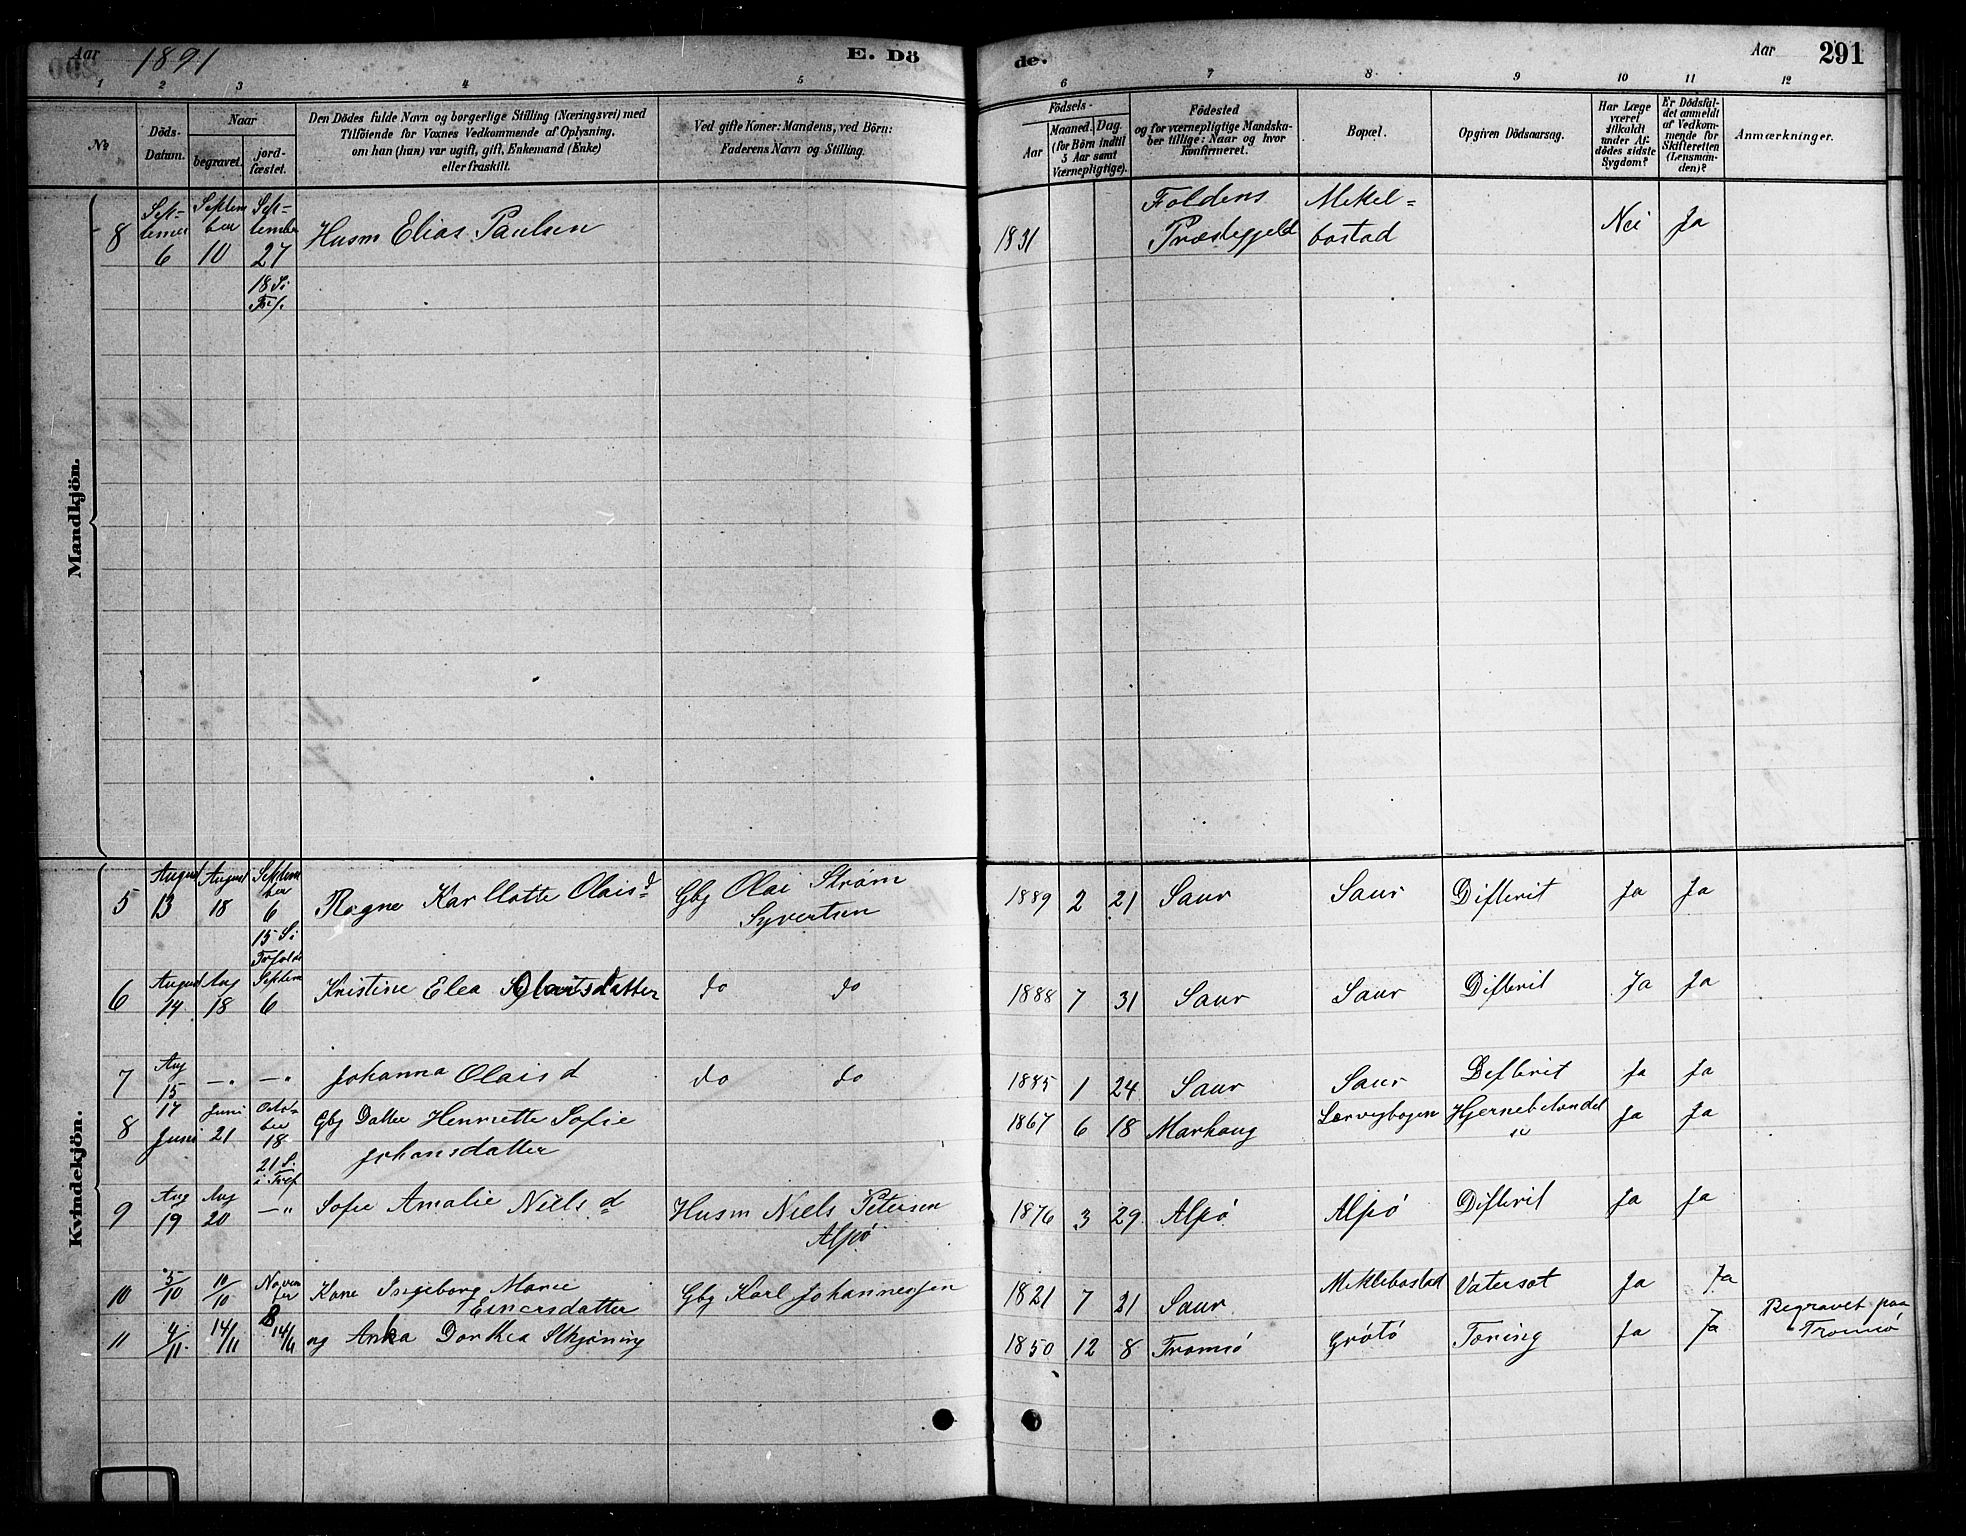 Aar 1891 E. Dö de. Aar 291
1 2 3 4 5 6 7 8 9 10 11 12
№
Döds-Datum.
Naar
begravet.
jord-fæstet.
Den Dödes fulde Navn og borgerlige Stilling (Næringsvei) med
Tilföiende for Voxnes Vedkommende af Oplysning,
om han (hun) var ugift, gift, Enkemand (Enke)
eller fraskilt.
Ved gifte Koner: Mandens, ved Börn:
Faderens Navn og Stilling.
Födsels-
Aar
Maaned. Dag.
(for Börn indtil
5 Aar samt
Værnepligtige).
Födested
og for værnepligtige Mandska-
ber tillige: Naar og hvor
konfirmeret.
Bopæl.
Opgiven Dödsaarsag.
Har Læge
været
tilkaldt
under Af-
dödes sidste
Sygdom?
Er Dödsfal-
det anmeldt
af Vedkom-
mende for
Skifteretten
(Lensman-
den)?
Anmærkninger.
Mandkjön.
8 Sep-tember 6 Septem ber 10 Sep-tember 27 Husm Elias Paulsen 1831 Foldens Præstegjeld Mekel-bostad Nei Ja
18 S i Tref.
Kvindekjön.
5 August 13 August 18 Septem ber 6 Ragna Karllotte Olaisd Gbg Olai Strøm 1889 2 21 Saur Saur Difterit Ja Ja
15 S i Syvertsen
6 August 14 Aug 18 Septem 6 Kristine Elea Olaisdatter do do 1888 7 31 Saur Saur Difterit Ja Ja
7 Aug 15 —„ —„ Johanna Olais d do do 1885 1 24 Saur Saur Difterit Ja Ja
8 17 Juni Juni 21 Octo-ber 18 Gbg Datter Henriette Sofie 1867 6 18 Marhaug Leervegbogen Ja Ja
21 S. i Tref Johansdatter
9 Aug 19 Aug 20 —„ Sofie Amalie Niels d Husm Niels Petersen 1876 3 29 Alpö Alpö Difterit Ja Ja
Alpö
10 5/10 10/10 Novem ber 8 Kone Ingeborg Marie Gbg Karl Johannessen 1821 7 21 Saur Meklebostad Vatersot Ja Ja
Einersdatter
11 4/11 14/11 14/11 Dorthea 1850 12 8 Tromsö Grötö Tæring Ja Ja Begravet paa
Tromsö